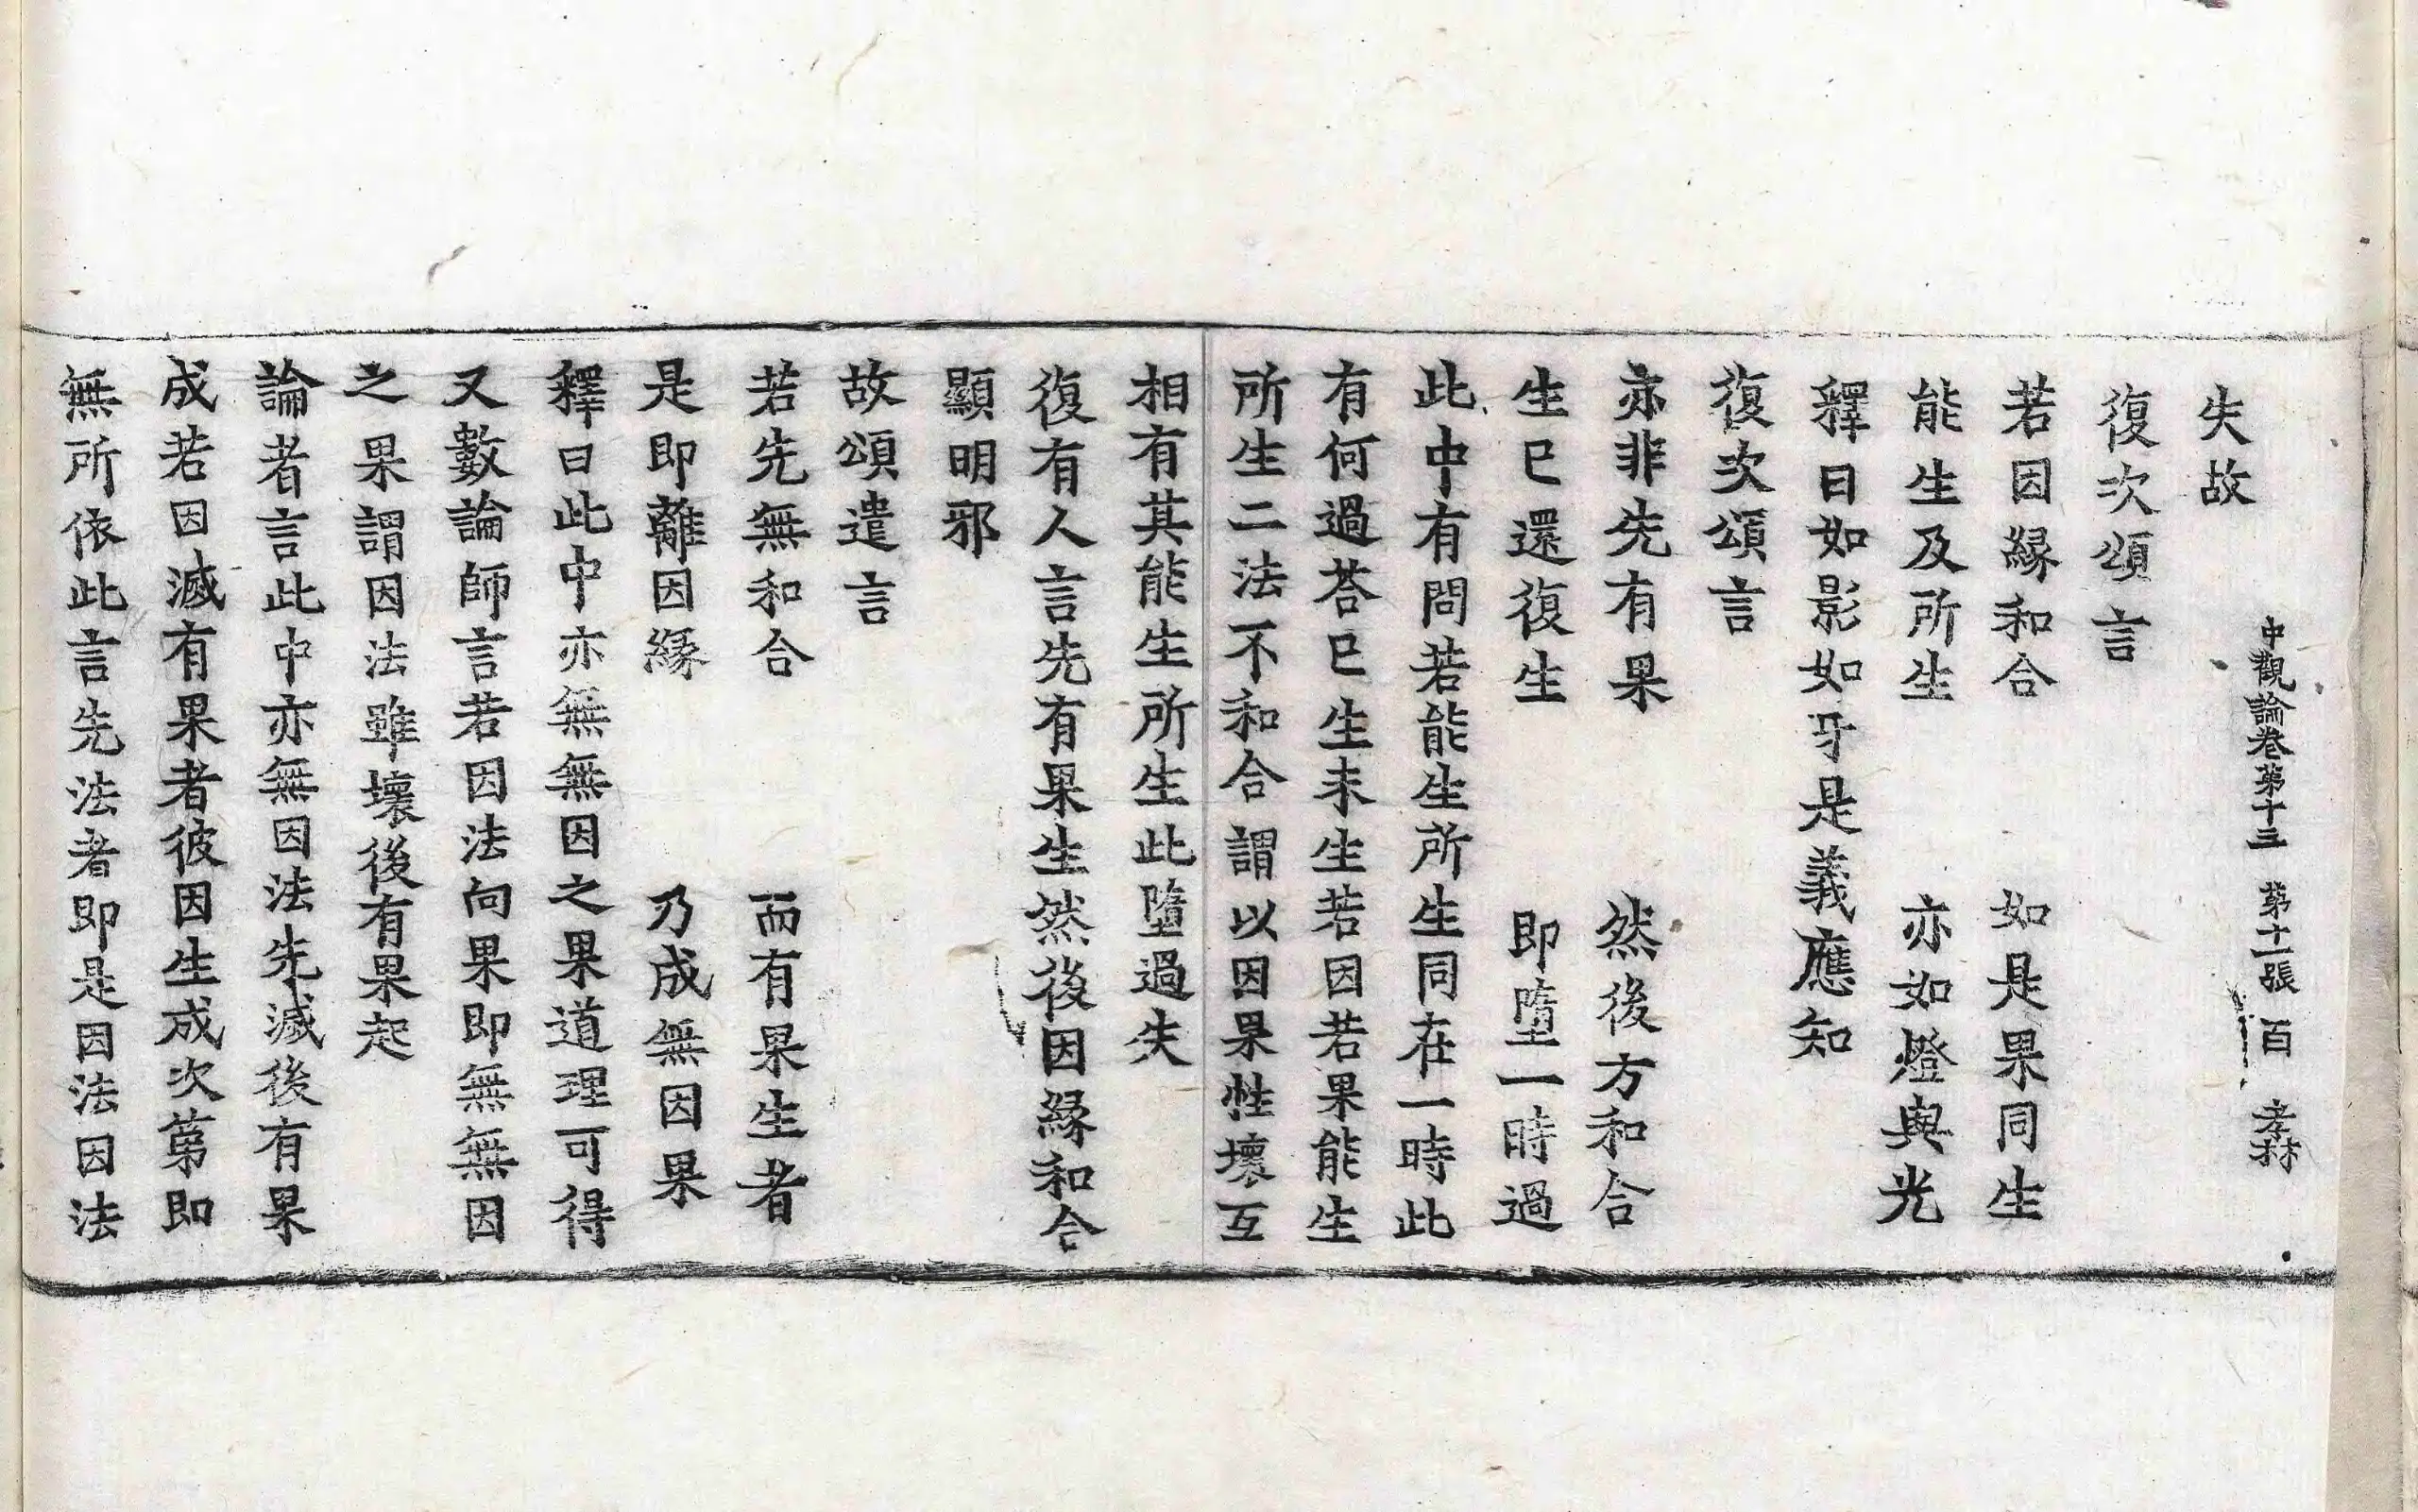 中觀論卷第十三 第十一張 百 孝林
失故
復次頌言
若因緣和合 如是果同生
能生及所生 亦如燈與光
釋曰如影如牙是義應知
復次頌言
亦非先有果 然後方和合
生已還復生 即墮一時過
此中有問若能生所生同在一時此
有何過荅已生未生若因若果能生
所生二法不和合謂以因果性壞互
相有其能生所生此墮過失
復有人言先有果生然後因緣和合
顯明邪
故頌遣言
若先無和合 而有果生者
是即離因緣 乃成無因果
釋曰此中亦無無因之果道理可得
又數論師言若因法向果即無無因
之果謂因法雖壞後有果起
論者言此中亦無因法先滅後有果
成若因滅有果者彼因生成次第即
無所依此言先法者即是因法因法